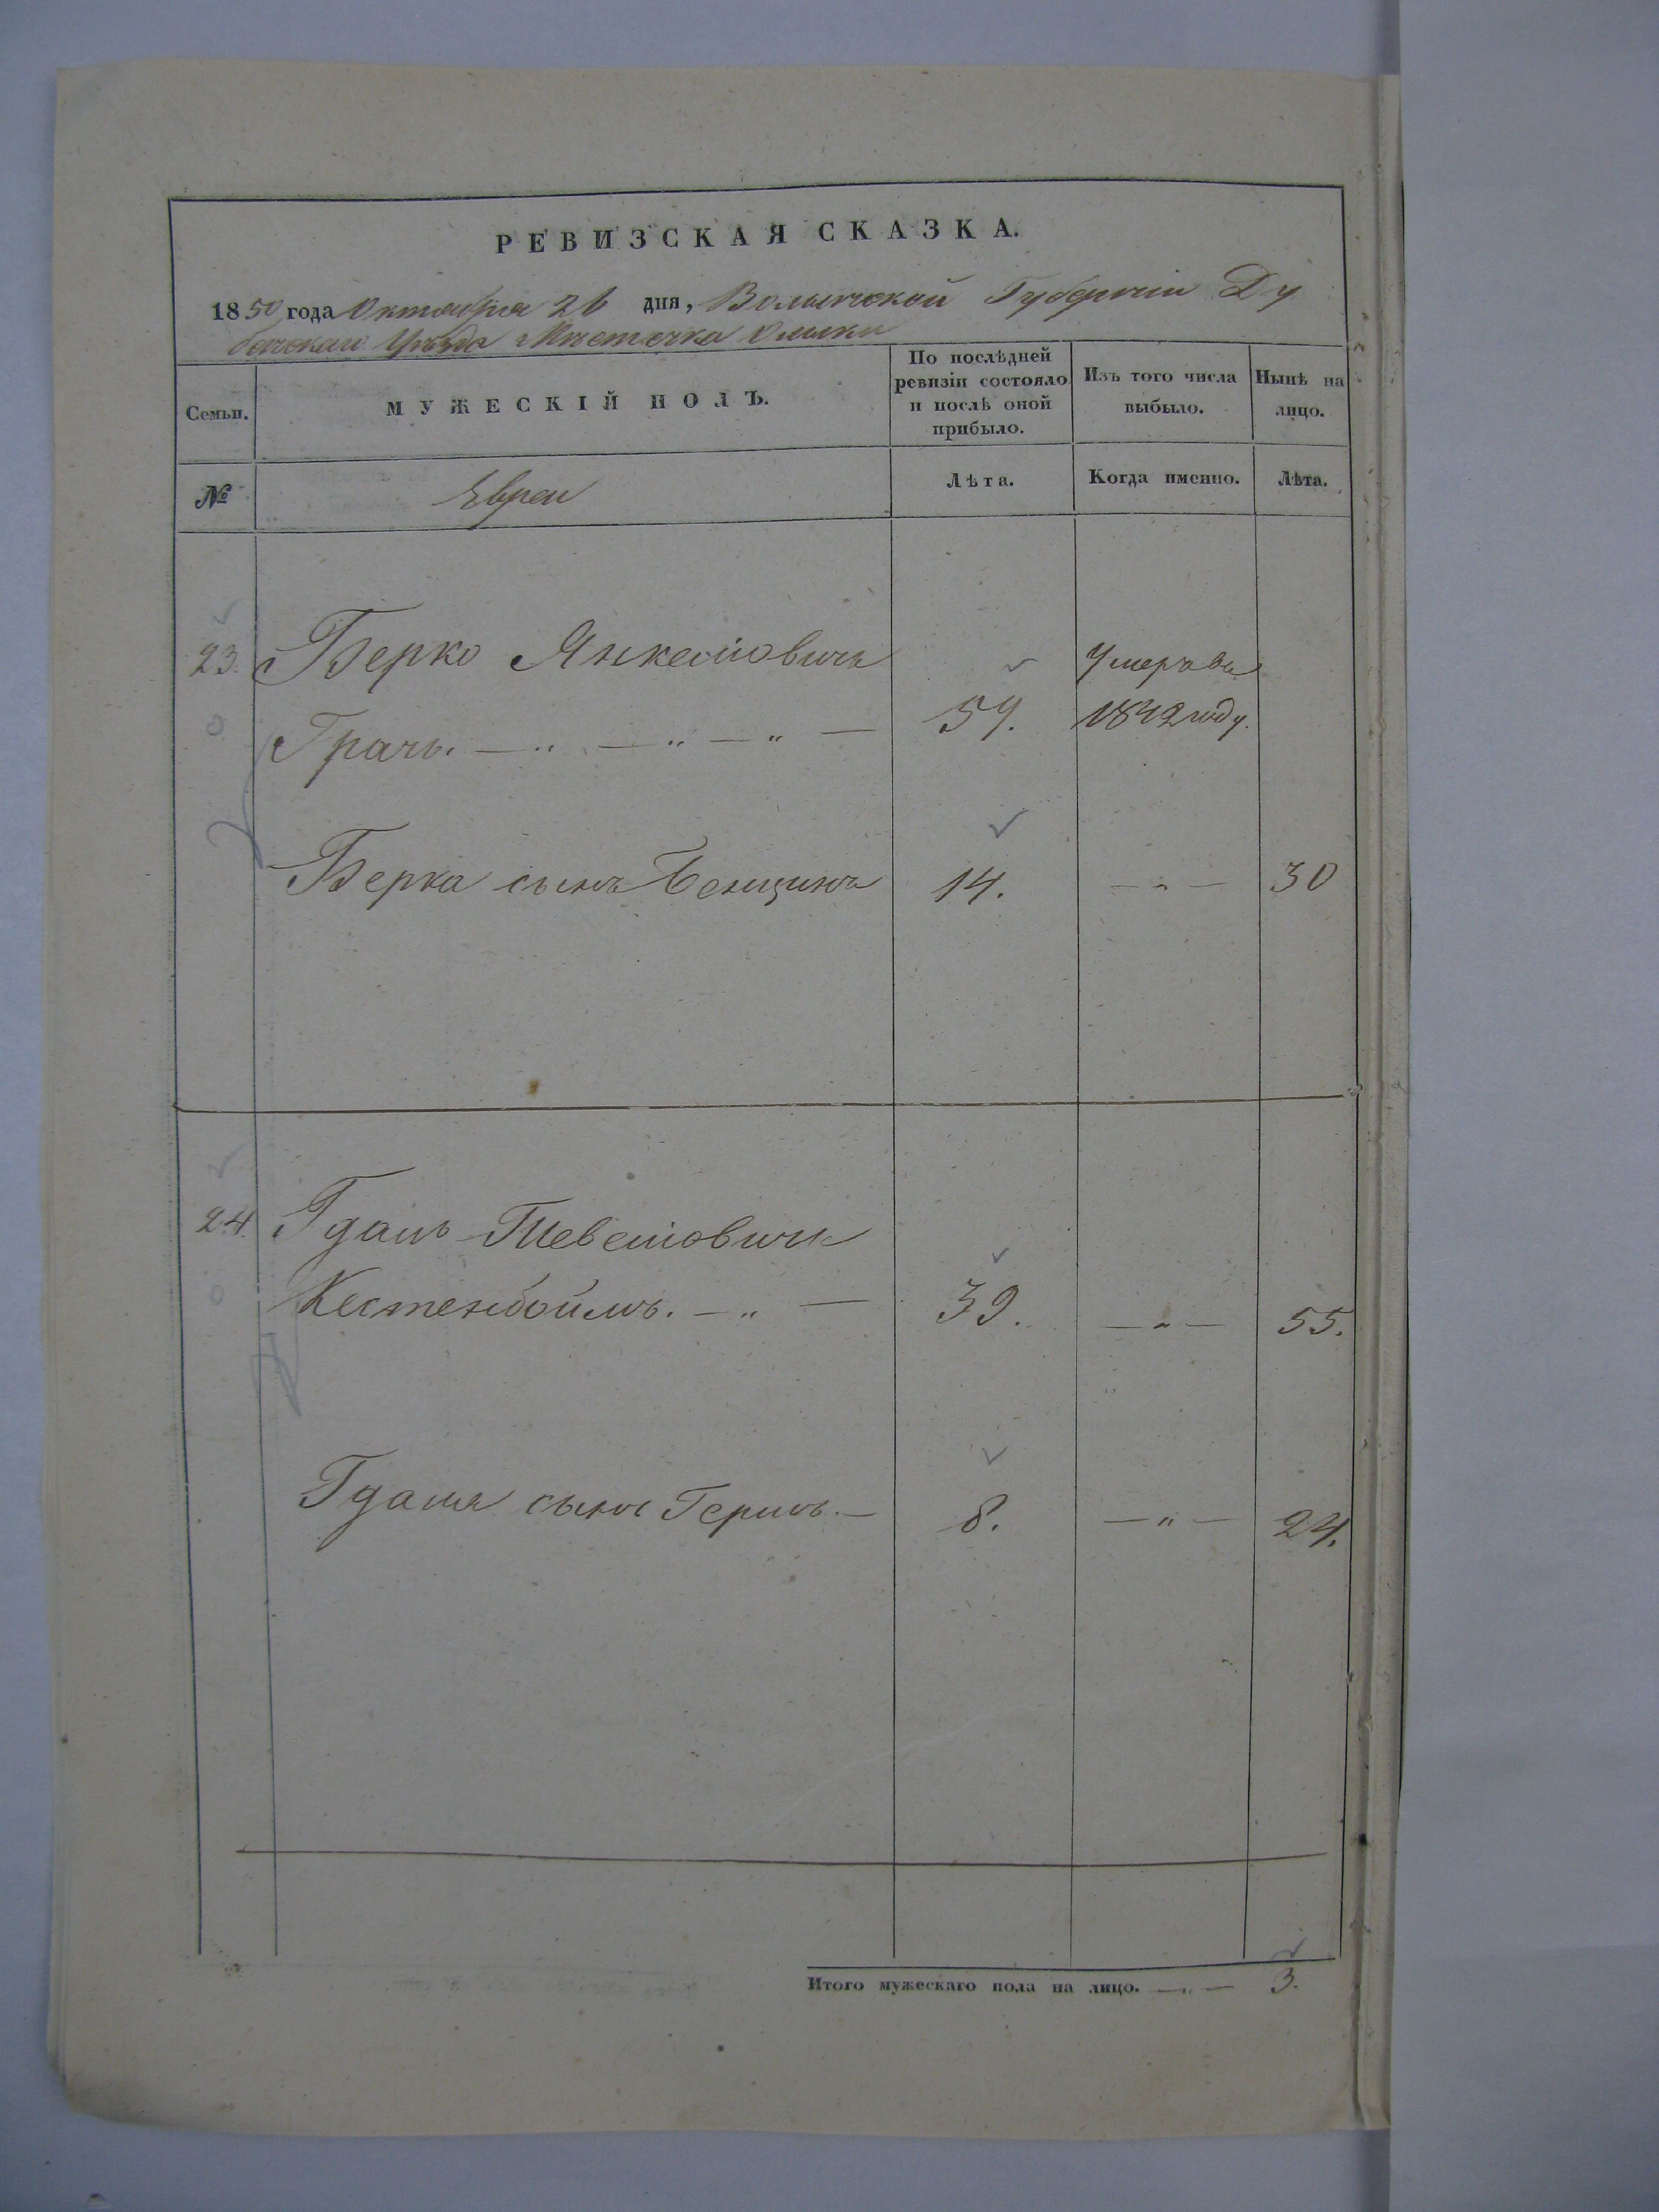 РЕВИЗСКАЯ СКАЗКА.
1850 года Октября 26 дня, Волынской Губерніи Ду
бенскаго Уѣзда Мѣстечка Олыки
Семьи.
МУЖЕСКІЙ ПОЛЪ.
По послѣдней
ревизіи состояло
и послѣ оной
прибыло.
Изъ того числа
выбыло.
Нынѣ на
лицо.
№
Евреи
Лѣта.
Когда именно.
Лѣта.
23. Берко Янкелiовичъ
Грачъ. — „ — „ — „ — 59. Умеръ въ
1842 году.
Берка сынъ Бенцинъ 14. — „ — 30
24. Гдаль Тевелiовичъ
Кестенбоймъ. — „ — 39. — „ — 55.
Гдаля сынъ Гершъ. — 8. — „ — 24.
Итого мужескаго пола на лицо. — „ — 3.